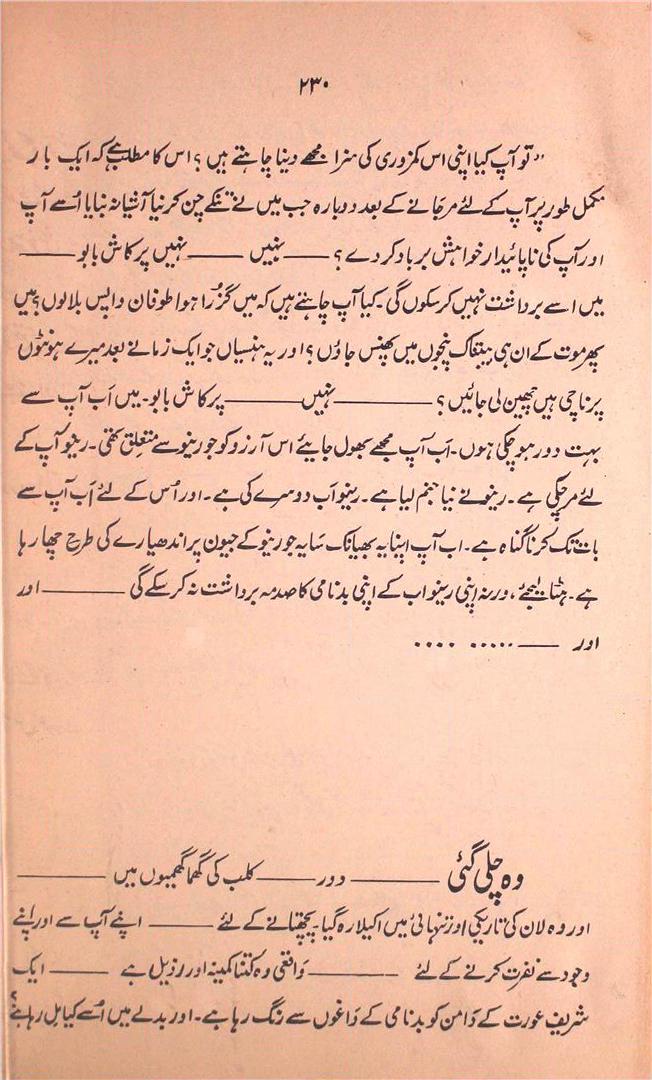 ۲۳۰
”تو آپ کیا اپنی اس کمزوری کی سزا مجھے دینا چاہتے ہیں ؟ اس کا مطلب ہے کہ ایک بار
مکمل طور پر آپ کے لئے مرجانے کے بعد دوبارہ جب میں نے تنکے چن کر نیا آشیانہ بنایا اُسے آپ
اور آپ کی ناپائیدار خواہش برباد کر دے ؟ ——— نہیں ——— نہیں پرکاش بابو ———
میں اسے برداشت نہیں کرسکوں گی۔ کیا آپ چاہتے ہیں کہ میں گزرا ہوا طوفان واپس بلالوں ؟ میں
پھر موت کے ان ہی سفاک پنجوں میں پھنس جاؤں ؟ اور یہ ہنسیاں جو ایک زمانے بعد میرے ہونٹوں
پر ناچی ہیں چھین لی جائیں ؟ ——— نہیں ——— پرکاش بابو۔ میں اَب آپ سے
بہت دور ہوچکی ہوں۔ اَب آپ مجھے بھول جایئے اس آرزو کو جو رینو سے متعلق تھی۔ رینو آپ کے
لئے مرچکی ہے۔ رینو نے نیا جنم لیا ہے۔ رینو اَب دوسرے کی ہے۔ اور اُس کے لئے اَب آپ سے
بات تک کرنا گناہ ہے۔ اب آپ اپنا یہ بھیانک سَایہ جو رینو کے جیون پر اندھیارے کی طرح چھا رہا
ہے۔ ہٹا لیجئے، ورنہ اپنی رینو اب کے اپنی بدنامی کا صدمہ برداشت نہ کرسکے گی ——— اور
اور ——— ..... ....
وہ چلی گئی ——— دور ——— کلب کی گھما گھمیوں میں ———
اور وہ لان کی تاریکی اور تنہائی میں اکیلا رہ گیا۔ پچھتانے کے لئے ——— اپنے آپ سے اور اپنے
وجود سے نفرت کرنے کے لئے ——— وَاقعی وہ کتنا کمینہ اور رذیل ہے ——— ایک
شریف عورت کے دَامن کو بدنامی کے دَاغوں سے رنگ رہا ہے۔ اور بدلے میں اُسے کیا مل رہا ہے؟